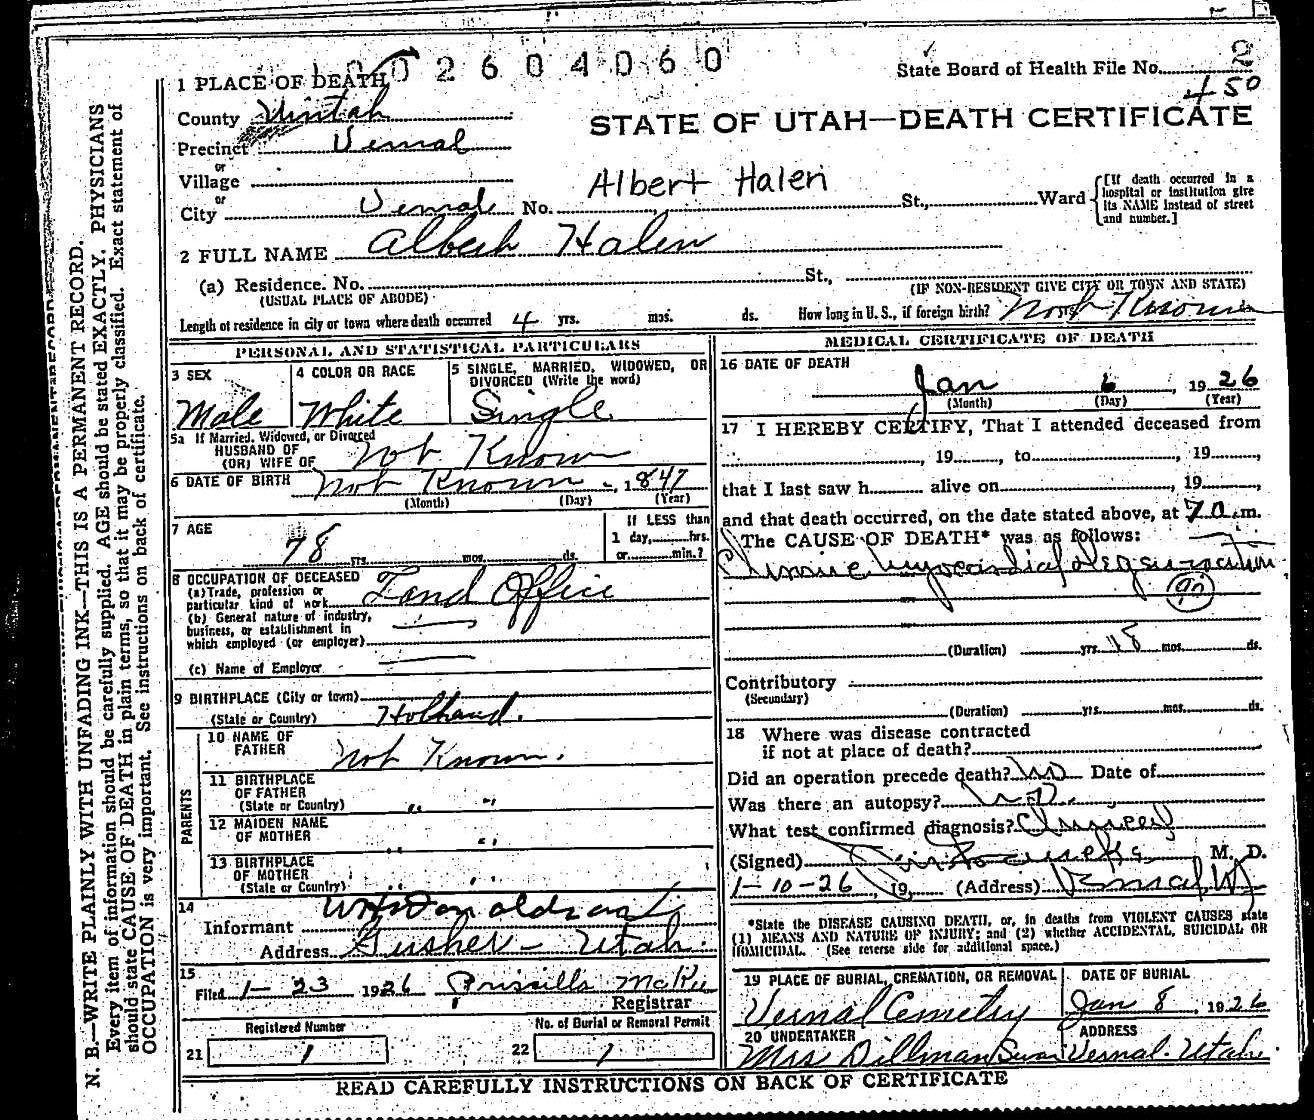 002604060
State Board of Health File No. 2
450
1 PLACE OF DEATH
County Uintah
STATE OF UTAH—DEATH CERTIFICATE
Precinct Vernal
or
Village
or
City Vernal No. Albert Halen St., Ward
[If death occurred in a hospital or institution give its NAME instead of street and number.]
2 FULL NAME Albert Halen
(a) Residence. No. St.,
(USUAL PLACE OF ABODE)
(IF NON-RESIDENT GIVE CITY OR TOWN AND STATE)
Length of residence in city or town where death occurred 4 yrs. mos. ds. How long in U. S., if foreign birth? Not Known
PERSONAL AND STATISTICAL PARTICULARS
3 SEX
Male
4 COLOR OR RACE
White
5 SINGLE, MARRIED, WIDOWED, OR DIVORCED (Write the word)
Single
5a If Married, Widowed, or Divorced
HUSBAND OF
(OR) WIFE OF Not Known
6 DATE OF BIRTH Not Known -, 1847
(Month) (Day) (Year)
7 AGE
78 yrs. mos. ds.
If LESS than
1 day, hrs.
or min.?
8 OCCUPATION OF DECEASED
(a) Trade, profession or
particular kind of work Land Office
(b) General nature of industry,
business, or establishment in
which employed (or employer)
(c) Name of Employer
9 BIRTHPLACE (City or town)
(State or Country) Holland.
PARENTS
10 NAME OF
FATHER Not Known.
11 BIRTHPLACE
OF FATHER
(State or Country) " "
12 MAIDEN NAME
OF MOTHER " "
13 BIRTHPLACE
OF MOTHER
(State or Country) " "
14
Informant
Address Gusher - Utah.
15
Filed 1-23 1926 Priscilla McKee
Registrar
Registered Number
21 1
No. of Burial or Removal Permit
22 1
MEDICAL CERTIFICATE OF DEATH
16 DATE OF DEATH
Jan 6, 1926
(Month) (Day) (Year)
17 I HEREBY CERTIFY, That I attended deceased from
, 19 , to , 19 ,
that I last saw h alive on , 19 ,
and that death occurred, on the date stated above, at 7 a.m.
The CAUSE OF DEATH* was as follows:
Chronic myocardial degeneration
90
(Duration) yrs. 18 mos. ds.
Contributory
(Secondary)
(Duration) yrs. mos. ds.
18 Where was disease contracted
if not at place of death?
Did an operation precede death? no Date of
Was there an autopsy? no.
What test confirmed diagnosis? Clinical
(Signed) M. D.
1-10-26, 19 , (Address) Vernal, Ut
*State the DISEASE CAUSING DEATH, or, in deaths from VIOLENT CAUSES state
(1) MEANS AND NATURE OF INJURY; and (2) whether ACCIDENTAL, SUICIDAL OR
HOMICIDAL. (See reverse side for additional space.)
19 PLACE OF BURIAL, CREMATION, OR REMOVAL
Vernal Cemetry
DATE OF BURIAL
Jan 8, 1926
20 UNDERTAKER
Mrs Dillman
ADDRESS
Vernal. Utah.
READ CAREFULLY INSTRUCTIONS ON BACK OF CERTIFICATE
N. B.—WRITE PLAINLY WITH UNFADING INK—THIS IS A PERMANENT RECORD.
Every item of information should be carefully supplied. AGE should be stated EXACTLY. PHYSICIANS
should state CAUSE OF DEATH in plain terms, so that it may be properly classified. Exact statement of
OCCUPATION is very important. See instructions on back of certificate.